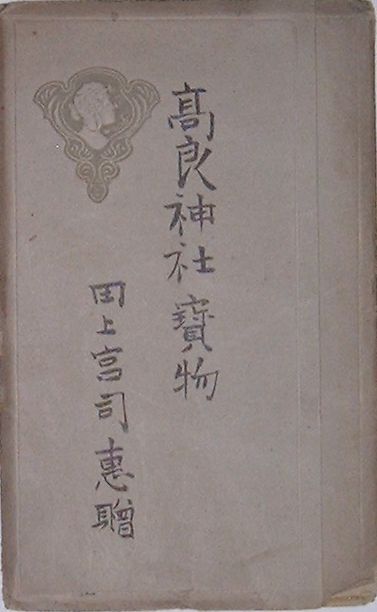 髙良神社寶物
田上宮司惠贈